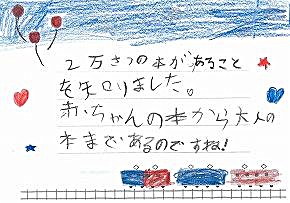 2万さつの本があること
を知りました。
赤ちゃんの本から大人の
本まであるのですね!